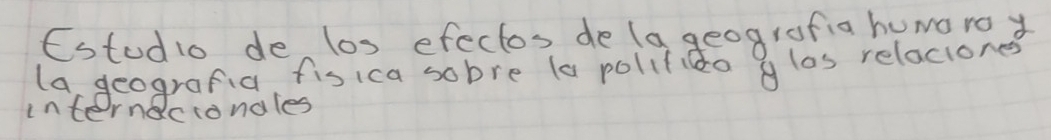 Estudio de los efectos de la geografia humana y
la geografia fisica sobre la politica y las relaciones
internacionales